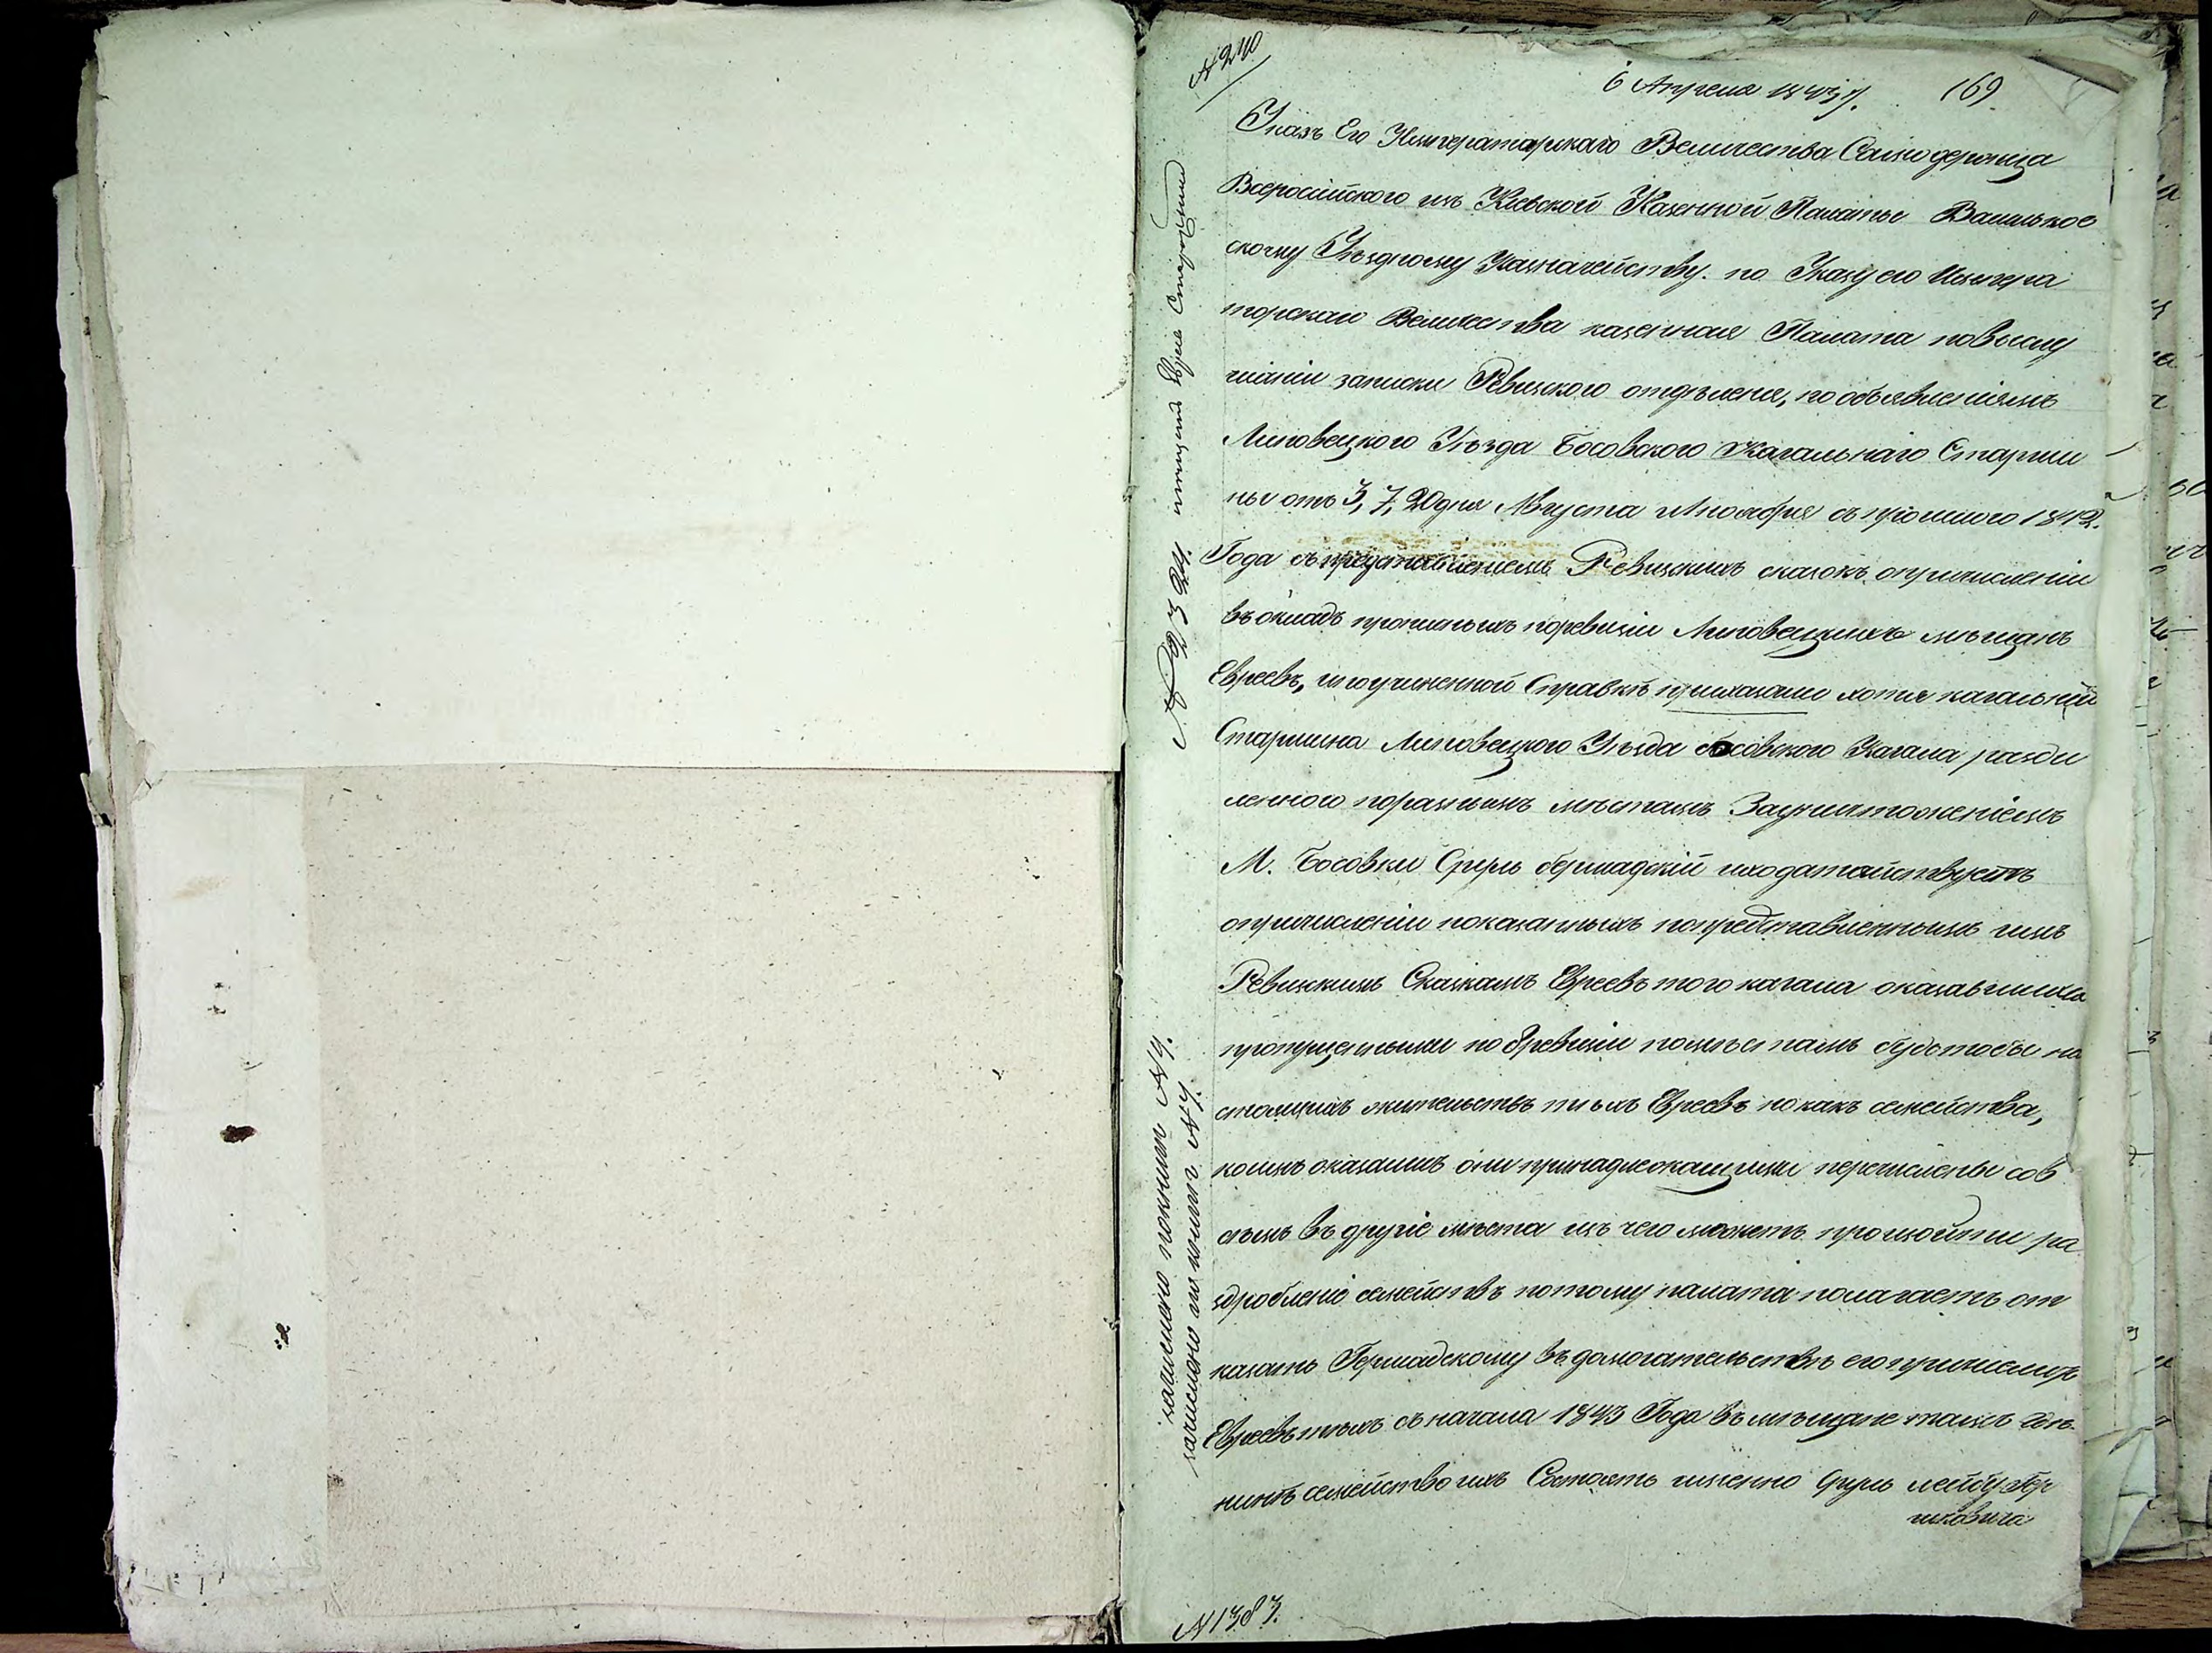 № 240
6 Апреля 1843 г. 169
Указъ Его Императорскаго Величества Самодержца
Всеросійского изъ Кіевской Казенной Палаты Васильков
скому Уѣздному Казначейству. по Указу его Импера
торскаго Величества казенная Палата повыслу
шаніи записки Ревизского отдѣленія, пообъявленіямъ
Липовецкого Уѣзда Босовского Кагальнаго Старши
ны отъ 3, 7, 20 дня Августа Ноября съ прошлого 1842.
Года съ представленіемъ Ревизскихъ сказокъ опричисленіи
въ окладъ прописныхъ поревизіи Липовецкихъ мѣщанъ
Евреевъ, поучиненной Справкѣ приказали хотя кагальный
Старшина Липовецкого Уѣзда Босовского Кагала разди
ленного поразнымъ мѣстамъ Зауничтоженіемъ
М. Босовки Сруль Гершадскій иходатайствуетъ
опричисленіи показанныхъ попредставленнымъ имъ
Ревизкимъ Сказкамъ Евреевъ того кагала оказавшихся
пропущенными по 8 ревизіи помѣстамъ будтобы на
стоящихъ жительствъ тѣхъ Евреевъ нокакъ семейства,
коимъ оказались они принадлежащими перечислены сов
сѣмъ въ другіе мѣста изъ чего можетъ произойти ра
здробленіе семействъ потому палата полагаетъ от
казать Гершадскому въ домогательствѣ его причислить
Евреевъ тѣхъ съ начала 1843 Года въ мѣщане тамъ гдѣ
нынѣ семейство ихъ Состоятъ именно Сруль лейбу Гер
шковича
№ 1383.
зачислено покниги № 9.
зачислено по книги №